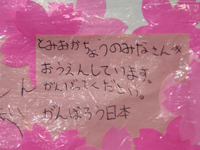 とみおかちょうのみなさんを
おうえんしています。
がんばってください。
がんばろう日本
ん